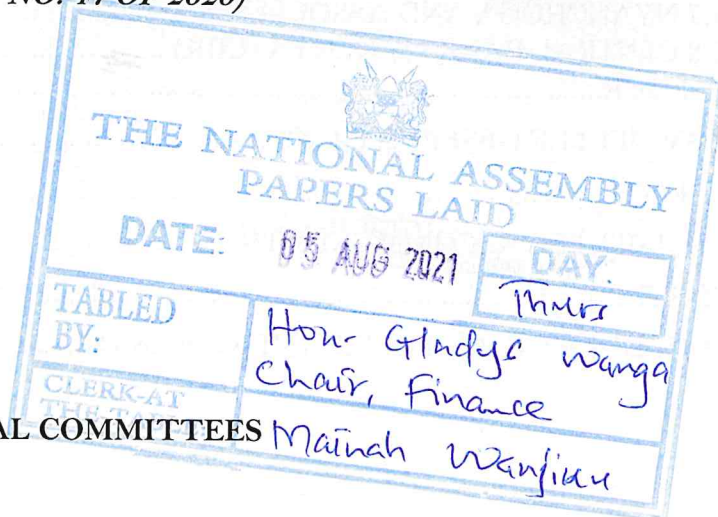 NO. 17 OF 2020)
THE NATIONAL ASSEMBLY
PAPERS LAID
DATE: 05 AUG 2021
DAY.
Thurs
TABLED
BY:
Hon. Gladys Wanga
Chair, Finance
CLERK-AT
THE-TABLE
AL COMMITTEES
Mainah Wanjiku